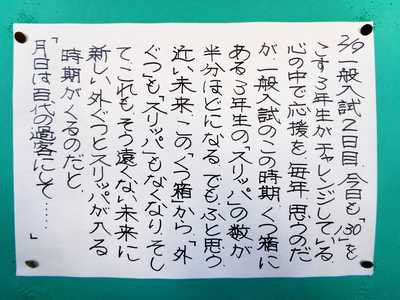 2/9 一般入試2日目. 今日も「30」を
こす3年生がチャレンジしている.
心の中で応援を. 毎年. 思うのだ
が. 一般入試のこの時期. くつ箱に
ある3年生の「スリッパ」の数が
半分ほどになる. でも. ふと思う.
近い未来. この「くつ箱」から.「外
ぐつ」も「スリッパ」もなくなり. そし
て. これも. そう遠くない未来に
新しい. 外ぐつとスリッパが入る
時期がくるのだと.
「月日は百代の過客にして……」